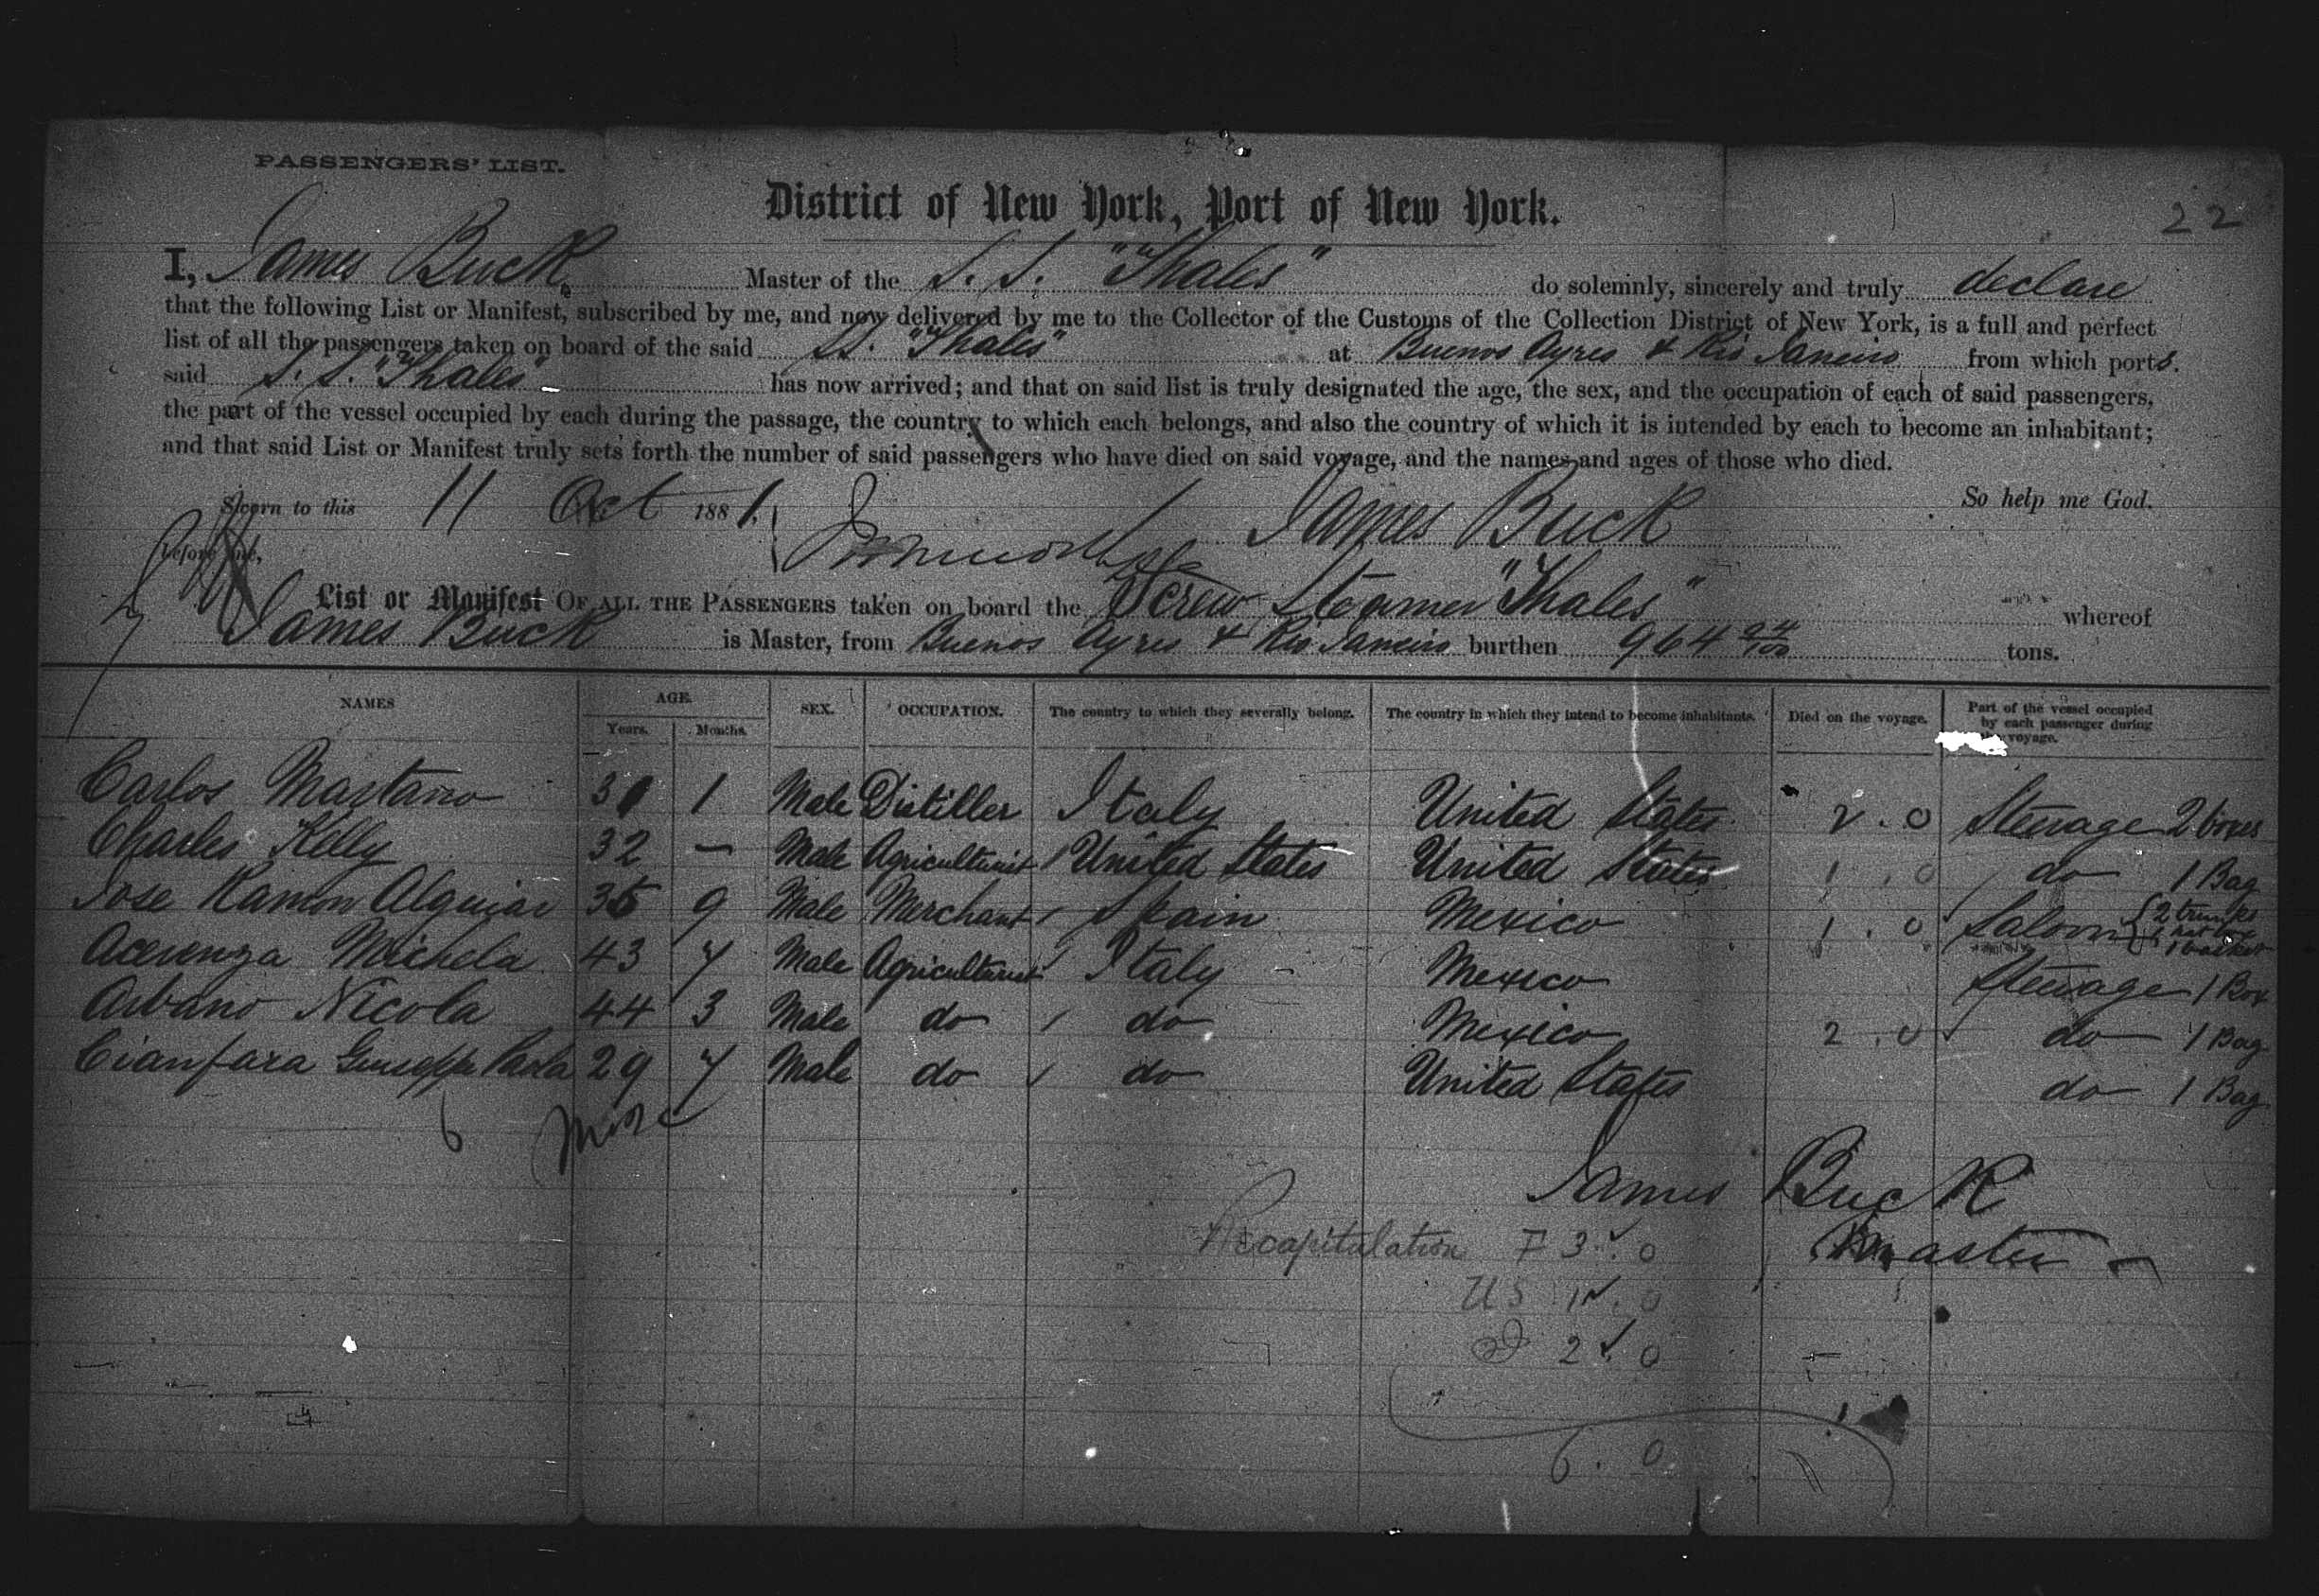 PASSENGERS' LIST.
District of New York, Port of New York.
22
I, James Buck Master of the S.S. "Thales" do solemnly, sincerely and truly declare
that the following List or Manifest, subscribed by me, and now delivered by me to the Collector of the Customs of the Collection District of New York, is a full and perfect
list of all the passengers taken on board of the said SS. "Thales" at Buenos Ayres & Rio Janeiro from which ports.
said S.S. "Thales" has now arrived; and that on said list is truly designated the age, the sex, and the occupation of each of said passengers,
the part of the vessel occupied by each during the passage, the country to which each belongs, and also the country of which it is intended by each to become an inhabitant;
and that said List or Manifest truly sets forth the number of said passengers who have died on said voyage, and the names and ages of those who died.
Sworn to this 11 Oct 1881. James Buck So help me God.
before me,
List or Manifest OF ALL THE PASSENGERS taken on board the Screw Steamer "Thales" whereof
James Buck is Master, from Buenos Ayres & Rio Janeiro burthen 964 24/100 tons.
NAMES AGE. Years. Months. SEX. OCCUPATION. The country to which they severally belong. The country in which they intend to become inhabitants. Died on the voyage. Part of the vessel occupied by each passenger during voyage.
Carlos Mastano 31 1 Male Distiller Italy United States 2.0 Steerage 2 boxes
Charles Kelly 32 — Male Agriculturist United States United States 1.0 do 1 Bag
Jose Ramon Alguiar 35 9 Male Merchant Spain Mexico 1.0 Saloon { 2 trunks 1 hat box 1 basket
Acerenza Michela 43 7 Male Agriculturist Italy Mexico Steerage 1 Box
Arbano Nicola 44 3 Male do do Mexico 2.0 do 1 Bag
Cianfara Giuseppe Paola 29 7 Male do do United States do 1 Bag
6
James Buck
Master
Recapitulation F 3.0
US 1.0
2.0
6.0